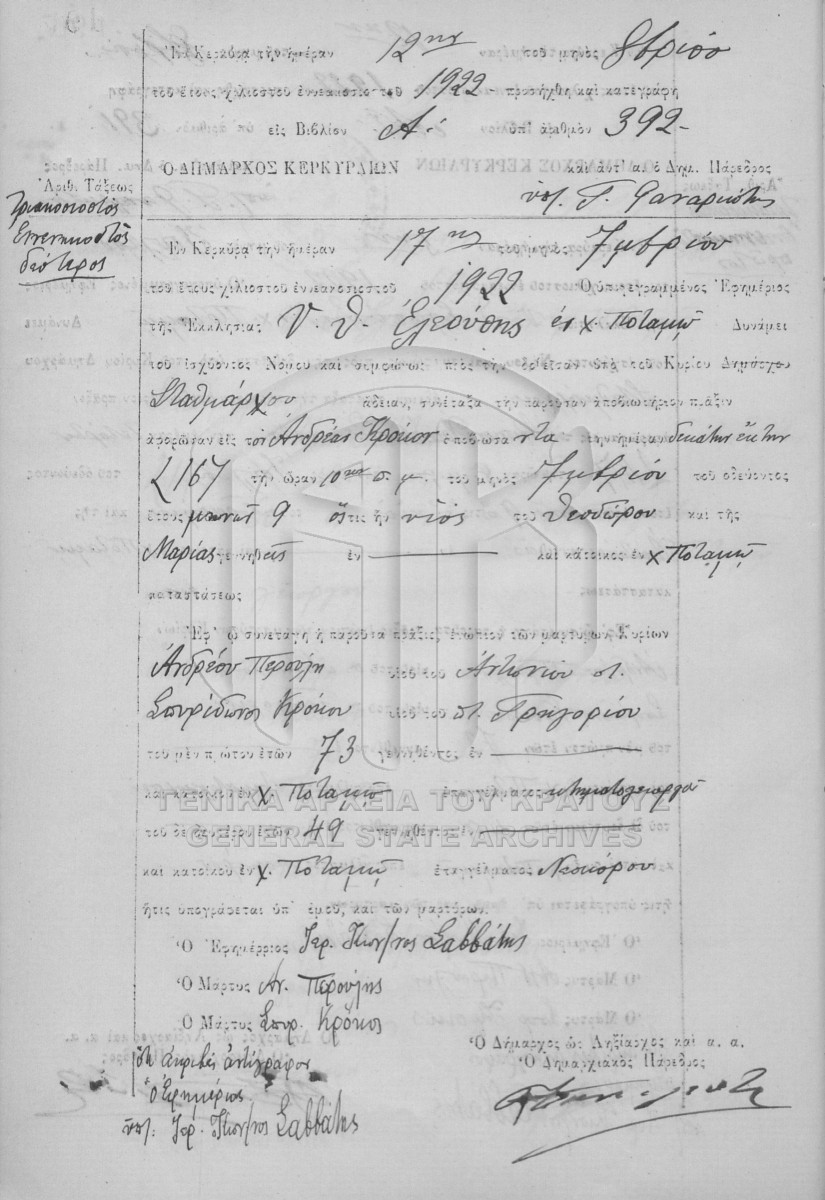 Ἐν Κερκύρᾳ τὴν ἡμέραν 12ην τοῦ μηνὸς 8βρίου
τοῦ ἔτους χιλιοστοῦ ἐννεακοσιοστοῦ 1922 προσήχθη καὶ κατεγράφη
εἰς Βιβλίον Α΄ ὑπ' ἀριθμὸν 392-
Ο ΔΗΜΑΡΧΟΣ ΚΕΡΚΥΡΑΙΩΝ καὶ ἀντ' α. ὁ Δημ. Πάρεδρος
Ἀριθ. Τάξεως
ὑπ. Γ.
Τριακοσιοστὸς
Ἐννενηκοστὸς
δεύτερος
Ἐν Κερκύρᾳ τὴν ἡμέραν 17ην τοῦ μηνὸς 7μβρίου
τοῦ ἔτους χιλιοστοῦ ἐννεακοσιοστοῦ 1922 Ὁ ὑπογεγραμμένος Ἐφημέριος
τῆς Ἐκκλησίας Υ. Θ. Ἐλεούσης ἐν χ. Ποταμῷ Δυνάμει
τοῦ ἰσχύοντος Νόμου καὶ συμφώνως πρὸς τὴν δοθεῖσαν ὑπὸ τοῦ Κυρίου Δημάρχου
Σταθμάρχου ἄδειαν, συνέταξα τὴν παροῦσαν ἀποβιωτήριον πρᾶξιν
ἀφορῶσαν εἰς τὸν Ἀνδρέαν Κρόκον ἀποβιώσαντα τὴν ἡμέραν δεκάτην ἕκτην
(16) τὴν ὥραν 10ην π. μ. τοῦ μηνὸς 7μβρίου τοῦ ὁδεύοντος
ἔτους μηνῶν 9 ὅστις ἦν υἱὸς τοῦ Θεοδώρου καὶ τῆς
Μαρίας γεννηθεὶς ἐν — καὶ κάτοικος ἐν χ Ποταμῷ
καταστάσεως
Ἐφ' ᾧ συνετάγη ἡ παροῦσα πρᾶξις, ἐνώπιον τῶν μαρτύρων Κυρίων
Ἀνδρέου Περούλη υἱοῦ τοῦ Ἀντωνίου
Σπυρίδωνος Κρόκου υἱοῦ τοῦ Γρηγορίου
τοῦ μὲν πρώτου ἐτῶν 73 γεννηθέντος ἐν —
καὶ κατοίκου ἐν χ. Ποταμῷ ἐπαγγέλματος κτηματογεωργοῦ
τοῦ δὲ δευτέρου ἐτῶν 49 γεννηθέντος ἐν —
καὶ κατοίκου ἐν χ. Ποταμῷ ἐπαγγέλματος Νεωκόρου
ἥτις ὑπογράφεται ὑπ' ἐμοῦ, καὶ τῶν μαρτύρων.
Ὁ Ἐφημέριος Ἱερ. Κων/νος Σαββάνης
Ὁ Μάρτυς Ἀν. Περούλης
Ὁ Μάρτυς Σπυρ. Κρόκος
Ὁ Δήμαρχος ὡς Ληξίαρχος καὶ α. α.
Ὁ Δημαρχιακὸς Πάρεδρος
ὅτι ἀκριβὲς ἀντίγραφον
Ὁ Ἐφημέριος
ὑπ. Ἱερ. Κων/νος Σαββάνης
ΓΕΝΙΚΑ ΑΡΧΕΙΑ ΤΟΥ ΚΡΑΤΟΥΣ
GENERAL STATE ARCHIVES